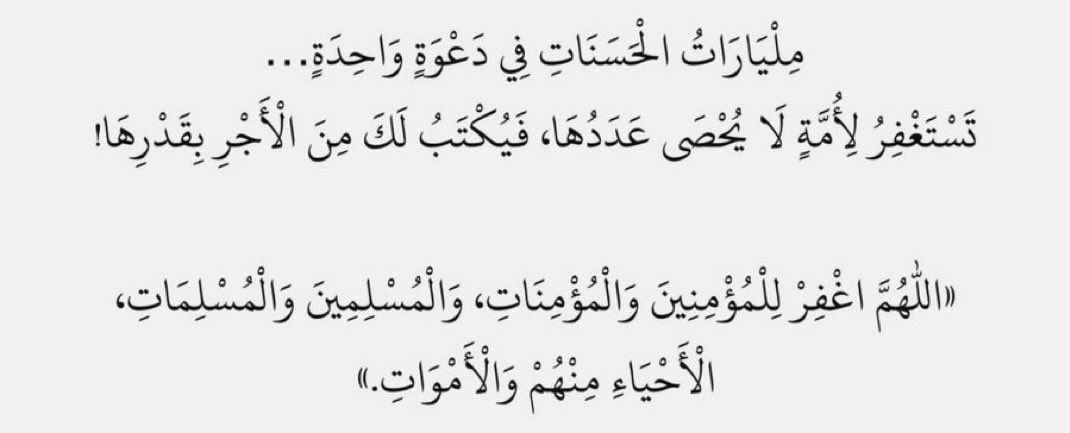 مِلْيَارَاتُ الْحَسَنَاتِ فِي دَعْوَةٍ وَاحِدَةٍ...
تَسْتَغْفِرُ لِأُمَّةٍ لَا يُحْصَى عَدَدُهَا، فَيُكْتَبُ لَكَ مِنَ الْأَجْرِ بِقَدْرِهَا!
«اللَّهُمَّ اغْفِرْ لِلْمُؤْمِنِينَ وَالْمُؤْمِنَاتِ، وَالْمُسْلِمِينَ وَالْمُسْلِمَاتِ،
الْأَحْيَاءِ مِنْهُمْ وَالْأَمْوَاتِ.»